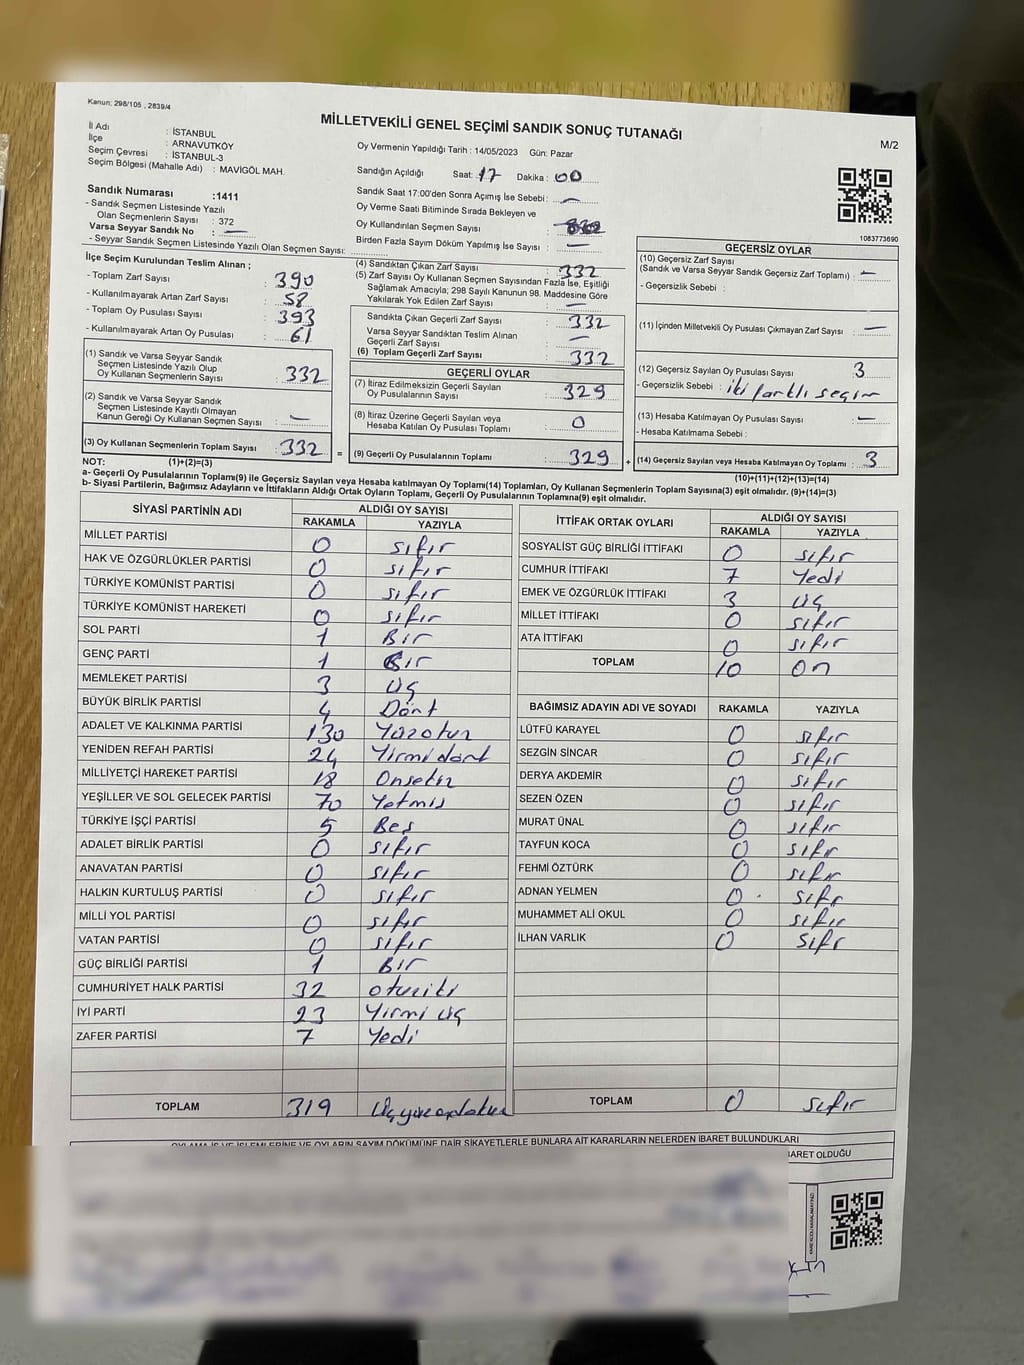 Kanun: 298/105 , 2839/4
MİLLETVEKİLİ GENEL SEÇİMİ SANDIK SONUÇ TUTANAĞI
M/2
İl Adı : İSTANBUL
İlçe : ARNAVUTKÖY
Seçim Çevresi : İSTANBUL-3
Seçim Bölgesi (Mahalle Adı) : MAVİGÖL MAH.
Sandık Numarası :1411
- Sandık Seçmen Listesinde Yazılı
Olan Seçmenlerin Sayısı : 372
Varsa Seyyar Sandık No : —
- Seyyar Sandık Seçmen Listesinde Yazılı Olan Seçmen Sayısı:
Oy Vermenin Yapıldığı Tarih : 14/05/2023 Gün: Pazar
Sandığın Açıldığı Saat: 17 Dakika: 00
Sandık Saat 17:00'den Sonra Açımış İse Sebebi: —
Oy Verme Saati Bitiminde Sırada Bekleyen ve
Oy Kullandırılan Seçmen Sayısı :
Birden Fazla Sayım Döküm Yapılmış İse Sayısı : —
1083773690
İlçe Seçim Kurulundan Teslim Alınan ;
- Toplam Zarf Sayısı : 390
- Kullanılmayarak Artan Zarf Sayısı : 58
- Toplam Oy Pusulası Sayısı : 393
- Kullanılmayarak Artan Oy Pusulası : 61
(1) Sandık ve Varsa Seyyar Sandık
Seçmen Listesinde Yazılı Olup
Oy Kullanan Seçmenlerin Sayısı : 332
(2) Sandık ve Varsa Seyyar Sandık
Seçmen Listesinde Kayıtlı Olmayan
Kanun Gereği Oy Kullanan Seçmen Sayısı : —
(3) Oy Kullanan Seçmenlerin Toplam Sayısı : 332 =
(4) Sandıktan Çıkan Zarf Sayısı : 332
(5) Zarf Sayısı Oy Kullanan Seçmen Sayısından Fazla İse, Eşitliği
Sağlamak Amacıyla; 298 Sayılı Kanunun 98. Maddesine Göre
Yakılarak Yok Edilen Zarf Sayısı : —
Sandıkta Çıkan Geçerli Zarf Sayısı : 332
Varsa Seyyar Sandıktan Teslim Alınan
Geçerli Zarf Sayısı : —
(6) Toplam Geçerli Zarf Sayısı : 332
GEÇERLİ OYLAR
(7) İtiraz Edilmeksizin Geçerli Sayılan
Oy Pusulalarının Sayısı : 329
(8) İtiraz Üzerine Geçerli Sayılan veya
Hesaba Katılan Oy Pusulası Toplamı : 0
(9) Geçerli Oy Pusulalarının Toplamı : 329 +
GEÇERSİZ OYLAR
(10) Geçersiz Zarf Sayısı
(Sandık ve Varsa Seyyar Sandık Geçersiz Zarf Toplamı) : —
- Geçersizlik Sebebi :
(11) İçinden Milletvekili Oy Pusulası Çıkmayan Zarf Sayısı : —
(12) Geçersiz Sayılan Oy Pusulası Sayısı : 3
- Geçersizlik Sebebi : iki farklı seçim
(13) Hesaba Katılmayan Oy Pusulası Sayısı : —
- Hesaba Katılmama Sebebi :
(14) Geçersiz Sayılan veya Hesaba Katılmayan Oy Toplamı : 3
NOT: (1)+(2)=(3) (10)+(11)+(12)+(13)=(14)
a- Geçerli Oy Pusulalarının Toplamı(9) ile Geçersiz Sayılan veya Hesaba katılmayan Oy Toplamı(14) Toplamları, Oy Kullanan Seçmenlerin Toplam Sayısına(3) eşit olmalıdır. (9)+(14)=(3)
b- Siyasi Partilerin, Bağımsız Adayların ve İttifakların Aldığı Ortak Oyların Toplamı, Geçerli Oy Pusulalarının Toplamına(9) eşit olmalıdır.
SİYASİ PARTİNİN ADI ALDIĞI OY SAYISI
RAKAMLA YAZIYLA
MİLLET PARTİSİ 0 sıfır
HAK VE ÖZGÜRLÜKLER PARTİSİ 0 sıfır
TÜRKİYE KOMÜNİST PARTİSİ 0 sıfır
TÜRKİYE KOMÜNİST HAREKETİ 0 sıfır
SOL PARTİ 1 Bir
GENÇ PARTİ 1 Bir
MEMLEKET PARTİSİ 3 üç
BÜYÜK BİRLİK PARTİSİ 4 Dört
ADALET VE KALKINMA PARTİSİ 130 Yüzotuz
YENİDEN REFAH PARTİSİ 24 Yirmi dört
MİLLİYETÇİ HAREKET PARTİSİ 18 Onsekiz
YEŞİLLER VE SOL GELECEK PARTİSİ 70 Yetmiş
TÜRKİYE İŞÇİ PARTİSİ 5 Beş
ADALET BİRLİK PARTİSİ 0 sıfır
ANAVATAN PARTİSİ 0 sıfır
HALKIN KURTULUŞ PARTİSİ 0 sıfır
MİLLİ YOL PARTİSİ 0 sıfır
VATAN PARTİSİ 0 sıfır
GÜÇ BİRLİĞİ PARTİSİ 1 Bir
CUMHURİYET HALK PARTİSİ 32 otuziki
İYİ PARTİ 23 Yirmi üç
ZAFER PARTİSİ 7 Yedi
TOPLAM 319 Üçyüzondokuz
İTTİFAK ORTAK OYLARI ALDIĞI OY SAYISI
RAKAMLA YAZIYLA
SOSYALİST GÜÇ BİRLİĞİ İTTİFAKI 0 sıfır
CUMHUR İTTİFAKI 7 Yedi
EMEK VE ÖZGÜRLÜK İTTİFAKI 3 üç
MİLLET İTTİFAKI 0 sıfır
ATA İTTİFAKI 0 sıfır
TOPLAM 10 on
BAĞIMSIZ ADAYIN ADI VE SOYADI RAKAMLA YAZIYLA
LÜTFÜ KARAYEL 0 sıfır
SEZGİN SİNCAR 0 sıfır
DERYA AKDEMİR 0 sıfır
SEZEN ÖZEN 0 sıfır
MURAT ÜNAL 0 sıfır
TAYFUN KOCA 0 sıfır
FEHMİ ÖZTÜRK 0 sıfır
ADNAN YELMEN 0 sıfır
MUHAMMET ALİ OKUL 0 sıfır
İLHAN VARLIK 0 sıfır
TOPLAM 0 sıfır
OYLAMA İŞ VE İŞLEMLERİNE VE OYLARIN SAYIM DÖKÜMÜNE DAİR ŞİKAYETLERLE BUNLARA AİT KARARLARIN NELERDEN İBARET BULUNDUKLARI
BARET OLDUĞU